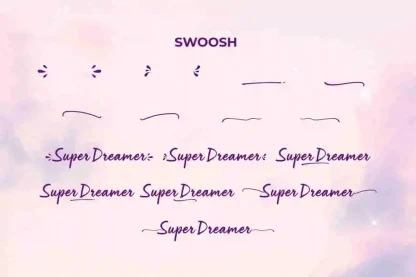 SWOOSH
Super Dreamer Super Dreamer Super Dreamer
Super Dreamer Super Dreamer Super Dreamer
Super Dreamer